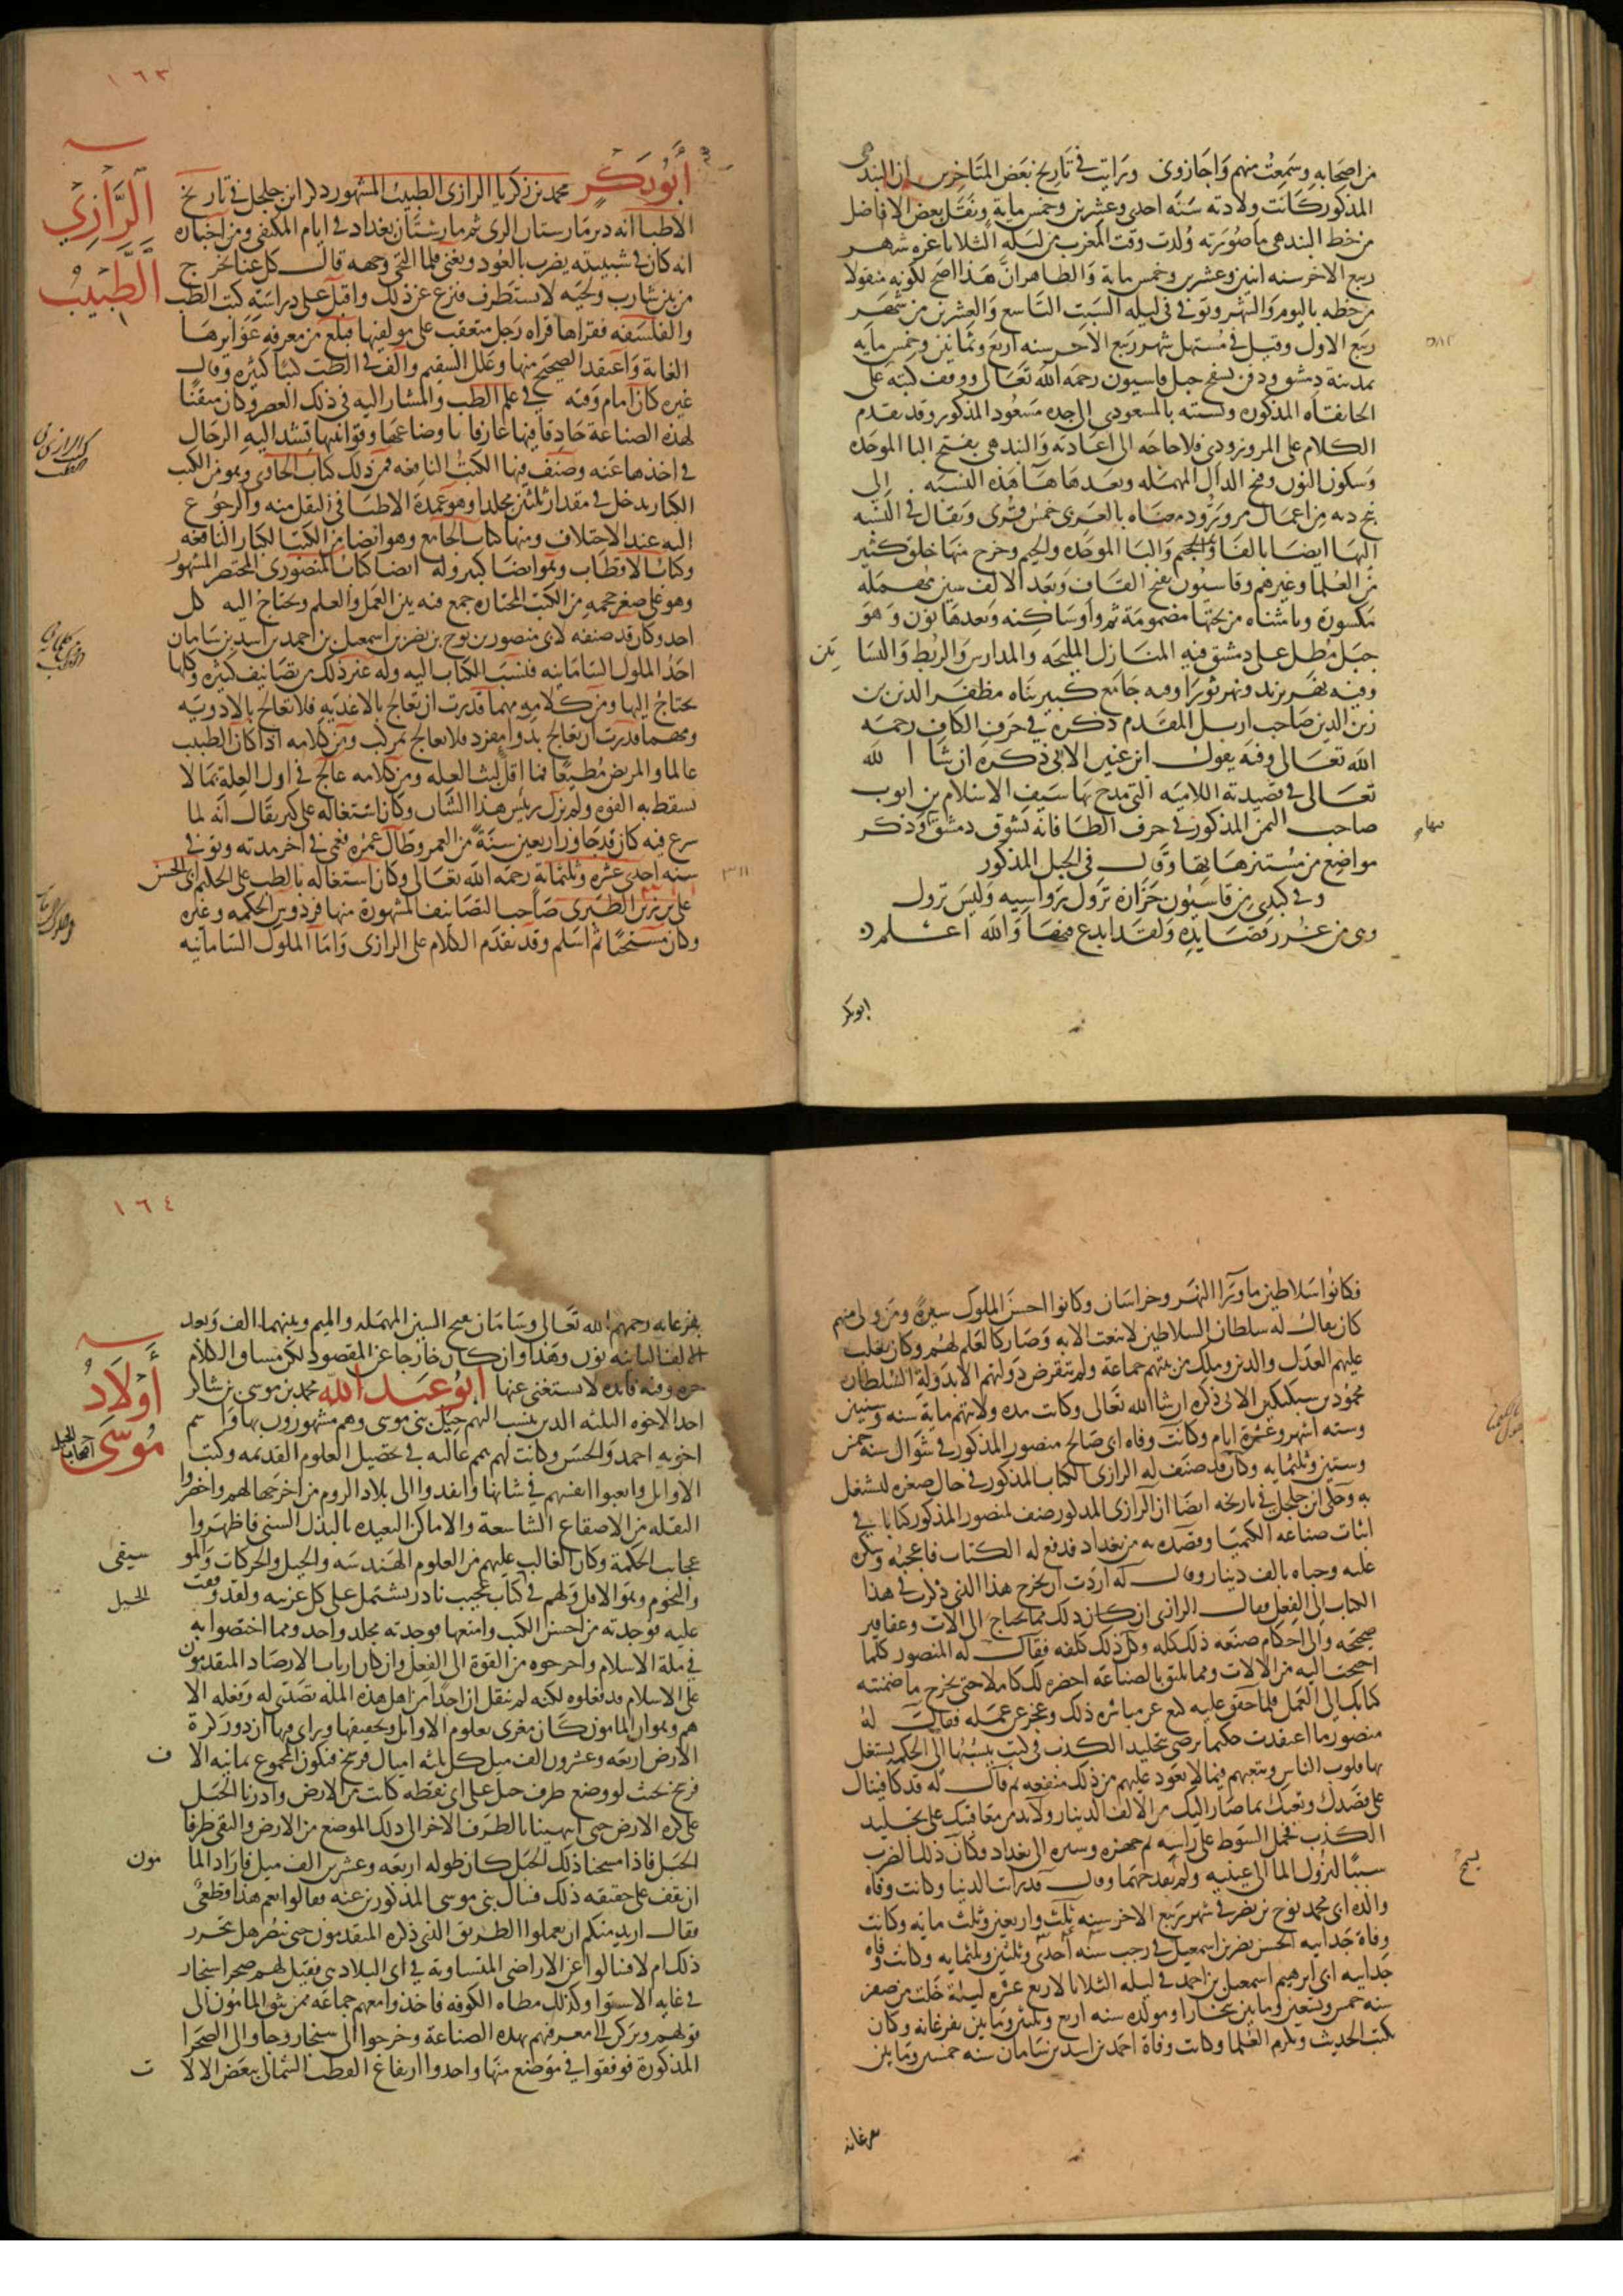 من اصحابه وسمعت منهم واجازوني ورايت في تاريخ بعض المتاخرين ان البندهى
المذكور كانت ولادته سنة احدى وعشرين وخمس ماية ونقل بعض الافاضل
من خط البندهى ما صورته ولدت وقت المغرب من ليلة الثلاثا غرة شهر
ربيع الاخر سنه اثنين وعشرين وخمس ماية والظاهر ان هذا اصح لكونه منقولا
من خطه باليوم والشهر وتوفي في ليلة السبت التاسع والعشرين من شهر
ربيع الاول وقيل في مستهل شهر ربيع الاخر سنه اربع وثمانين وخمس مايه
٥٨٤
بمدينة دمشق ودفن بسفح جبل قاسيون رحمه الله تعالى ووقف كتبه على
الخانقاه المذكوره ونسبته بالمسعودي الى جده مسعود المذكور وقد تقدم
الكلام على المروروذي فلا حاجه الى اعادته والبندهي بفتح البا الموحده
وسكون النون وفتح الدال المهمله وبعدها ها هذه النسبه الى
بنج ديه من اعمال مروروذ ومعناه بالعربى خمس قرى ويقال في النسبه
اليها ايضا بالفا والجيم والبا الموحده والجيم وخرج منها خلق كثير
من العلما وغيرهم وقاسيون بفتح القاف وبعد الالف سين مهمله
مكسورة ويا مثناه من تحتها مضمومة ثم واو ساكنه وبعدها نون وهو
جبل مطل على دمشق فيه المنازل المليحه والمدارس والربط والبسا تين
وفيه نهر يزيد ونهر ثورا وفيه جامع كبير بناه مظفر الدين بن
زين الدين صاحب اربل المقدم ذكره في حرف الكاف رحمه
الله تعالى وفيه يقول ابن عنين الاتي ذكره ان شا الله
تعالى في قصيدته اللاميه التي مدح بها سيف الاسلام بن ايوب
صاحب اليمن المذكور في حرف الطا فانه تشوق دمشق وذكر
مواضع من مستنزهاتها وقال في الجبل المذكور
وفي كبدي من قاسيون حزازة تزول رواسيه وليس تزول
وهى من غرر قصايده ولقد ابدع فيها والله اعلم
ابوبكر
١٦٣
الرازي
الطبيب
ابوبكر محمد بن زكريا الرازى الطبيب المشهور ذكر ابن جلجل في تاريخ
الاطبا انه دبر مارستان الرى ثم مارستان بغداد في ايام المكتفى ومن اخباره
انه كان في شبيبته يضرب بالعود ويغنى فلما التحى وجهه قال كل غنا يخرج
من بين شارب ولحيه لا يستظرف فنزع عن ذلك واقبل على دراسة كتب الطب
والفلسفه فقراها قراه رجل متعقب على مولفيها فبلغ من معرفه غوايرها
الغاية واعتقد الصحيح منها وعلل السقيم والف في الطب كتبا كثيرة وقال
غيره كان امام وقته في علم الطب والمشار اليه في ذلك العصر وكان متقنا
لهذه الصناعة حاذقا فيها عارفا باوضاعها وقوانينها تشد اليه الرحال
في اخذها عنه وصنف فيها الكتب النافعه فمن ذلك كتاب الحاوي وهو من الكتب
الكبار يدخل في مقدار ثلثين مجلدا وهو عمدة الاطبا في النقل منه والرجوع
اليه عند الاختلاف ومنها كتاب الجامع وهو ايضا من الكتب الكبار النافعه
وكتاب الاقطاب وهو ايضا كبير وله ايضا كتاب المنصوري المختصر المشهور
وهو على صغر حجمه من الكتب المختاره جمع فيه بين العمل والعلم ويحتاج اليه كل
احد وكان قد صنفه لابي منصور بن نوح بن نصر بن اسمعيل بن احمد بن اسد بن سامان
احد الملوك السامانيه فنسب الكتاب اليه وله غير ذلك من تصانيف كثيره وكلها
يحتاج اليها ومن كلامه مهما قدرت ان تعالج بالاغذيه فلا تعالج بالادويه
ومهما قدرت ان تعالج بدوا مفرد فلا تعالج بمركب ومن كلامه اذا كان الطبيب
عالما والمريض مطيعا فما اقل لبث العله ومن كلامه عالج في اول العلة بما لا
تسقط به القوه ولم يزل رييس هذا الشان وكان اشتغاله على كبر يقال انه لما
شرع فيه كان قد جاوز اربعين سنة من العمر وطال عمره فعمي في اخر مدته وتوفي
سنه احدى عشره وثلثماية رحمه الله تعالى وكان اشتغاله بالطب على الحكيم ابى الحسن
٣١١
على بن زين الطبرى صاحب التصانيف المشهورة منها فردوس الحكمه وغيره
وكان مسيحيا ثم اسلم وقد تقدم الكلام على الرازى واما الملوك السامانيه
فكانوا سلاطين ماورا النهر وخراسان وكانوا احسن الملوك سيرة ومن ولى منهم
كان يقال له سلطان السلاطين لا ينعت الا به وصار كالعلم لهم وكان يغلب
عليهم العدل والدين وملك من بيتهم جماعة ولم تنقرض دولتهم الا بدولة السلطان
محمود بن سبكتكين الاتى ذكره ان شا الله تعالى وكانت مدة ولايتهم ماية سنه وسنتين
وستة اشهر وعشرة ايام وكانت وفاة ابى صالح منصور المذكور في شوال سنة خمس
وستين وثلثمايه وكان قد صنف له الرازى الكتاب المذكور في حال صغره ليشتغل
به وحكى ابن جلجل في تاريخه ايضا ان الرازى المذكور صنف لمنصور المذكور كتابا في
اثبات صناعه الكيميا وقصده به من بغداد فدفع له الكتاب فاعجبه وشكره
عليه وحباه بالف دينار وقال له اردت ان تخرج هذا الذى ذكرت في هذا
الكتاب الى الفعل فقال الرازى ان كان ذلك مما يحتاج الى الات وعقاقير
صحيحه والى احكام صنعه ذلك كله وكل ذلك كلفه فقال له المنصور كلما
احتجت اليه من الالات ومما يليق بالصناعة احضره لك كاملا حتى يخرج ما ضمنته
كتابك الى العمل فلما حقق عليه كع عن مباشره ذلك وعجز عن عمله فقال له
منصور ما اعتقدت حكيما يرضى بتخليد الكذب في كتب ينسبها الى الحكمه يشغل
بها قلوب الناس ويتعبهم فيما لا يعود عليهم من ذلك منفعه ثم قال له قد كافيناك
على قصدك وتعبك بما صار اليك من الالف الدينار ولابد من معاقبتك على تخليد
الكذب فحمل السوط على راسه ثم جهزه وسيره الى بغداد وكان ذلك الضرب
سببا لنزول الما الى عينيه ولم يقدحهما وقال قد رايت الدنيا وكانت وفاة
والده ابى محمد نوح بن نصر في شهر ربيع الاخر سنه ثلث واربعين وثلث مايه وكانت
وفاة جد ابيه الحسن نصر بن اسمعيل في رجب سنه احدى وثلثين وثلثمايه وكانت وفاه
جد ابيه ابى ابرهيم اسمعيل بن احمد في ليله الثلاثا لاربع عشره ليلة خلت من صفر
سنه خمس وتسعين ومايتين ببخارا ومولده سنه اربع وثلثين ومايتين بفرغانه وكان
يكتب الحديث ويكرم العلما وكانت وفاة احمد بن اسد بن سامان سنه خمسين ومايتين
بفرغانه
١٦٤
اولاد
موسى
اصحاب الحيل
بفرغانه رحمهم الله تعالى وسامان بفتح السين المهمله والميم وبينهما الف وبعد
الالف الثانيه نون وهذا وان كان خارجا عن المقصود لكن مساق الكلام
جره وفيه فائده لا يستغنى عنها ابو عبد الله محمد بن موسى بن شاكر
احد الاخوه الثلثه الذين ينسب اليهم حيل بنى موسى وهم مشهورون بها واسم
اخويه احمد والحسن وكانت لهم همم عاليه في تحصيل العلوم القديمه وكتب
الاوايل واتعبوا انفسهم في شانها وانفدوا الى بلاد الروم من اخرجها لهم واحضروا
النقله من الاصقاع الشاسعة والاماكن البعيده بالبذل السنى فاظهروا
عجايب الحكمة وكان الغالب عليهم من العلوم الهندسه والحيل والحركات والمو سيقى
والنجوم وهو الاقل ولهم في الحيل كتاب عجيب نادر يشتمل على كل غريبه ولقد وقفت
عليه فوجدته من احسن الكتب وامتعها فوجدته مجلد واحد ومما اختصوا به
في ملة الاسلام واخرجوه من القوة الى الفعل وان كان ارباب الارصاد المتقدمون
على الاسلام قد فعلوه لكنه لم ينقل ان احدا من اهل هذه المله تصدى له وفعله الا
هم وهو ان المامون كان مغرى بعلوم الاوايل وتحقيقها وراى فيها ان دور كرة
الارض اربعه وعشرون الف ميل كل ثلثه اميال فرسخ فيكون المجموع ثمانيه الا ف
فرسخ بحيث لو وضع طرف حبل على اى نقطه كانت من الارض وادرنا الحبل
على كره الارض حتى انتهينا بالطرف الاخر الى ذلك الموضع من الارض والتقى طرفا
الحبل فاذا مسحنا ذلك الحبل كان طوله اربعه وعشرين الف ميل فاراد الما مون
ان يقف على حقيقه ذلك فسال بنى موسى المذكورين عنه فقالوا نعم هذا قطعى
فقال اريد منكم ان تعملوا الطريق الذى ذكره المتقدمون حتى ننظر هل يتحرر
ذلك ام لا فسالوا عن الاراضى المتساوية في اى البلاد هى فقيل لهم صحرا سنجار
في غايه الاستوا وكذلك وطاه الكوفه فاخذوا معهم جماعه ممن يثق المامون الى
قولهم ويركن الى معرفتهم بهذه الصناعة وخرجوا الى سنجار وجاوا الى الصحرا
المذكورة فوقفوا في موضع منها واخذوا ارتفاع القطب الشمالى ببعض الالا ت